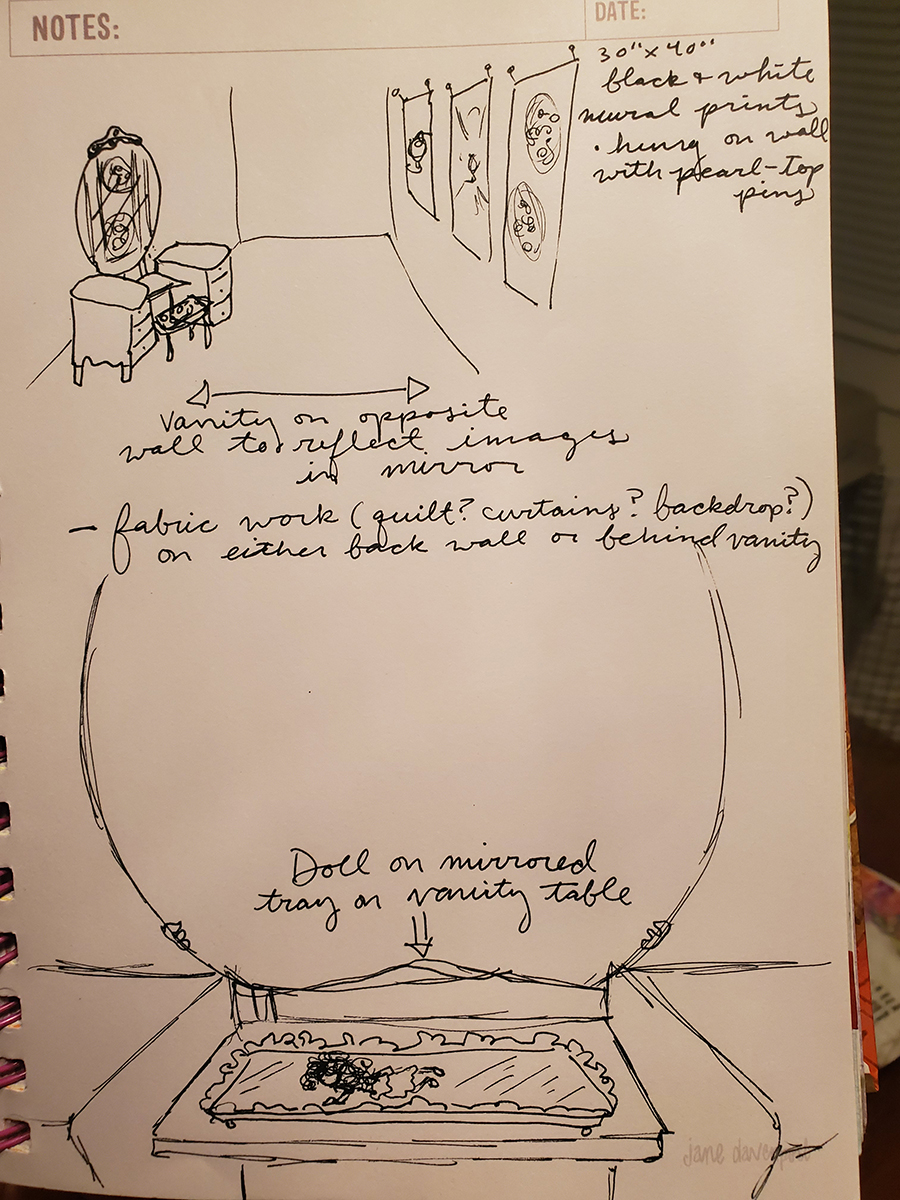 NOTES:
DATE:
30"x40"
black & white
mural prints
• hung on wall
with pearl-top
pins
Vanity on opposite
wall to reflect images
in mirror
- fabric work (quilt? curtains? backdrop?)
on either back wall or behind vanity
Doll on mirrored
tray on vanity table
jane davenport